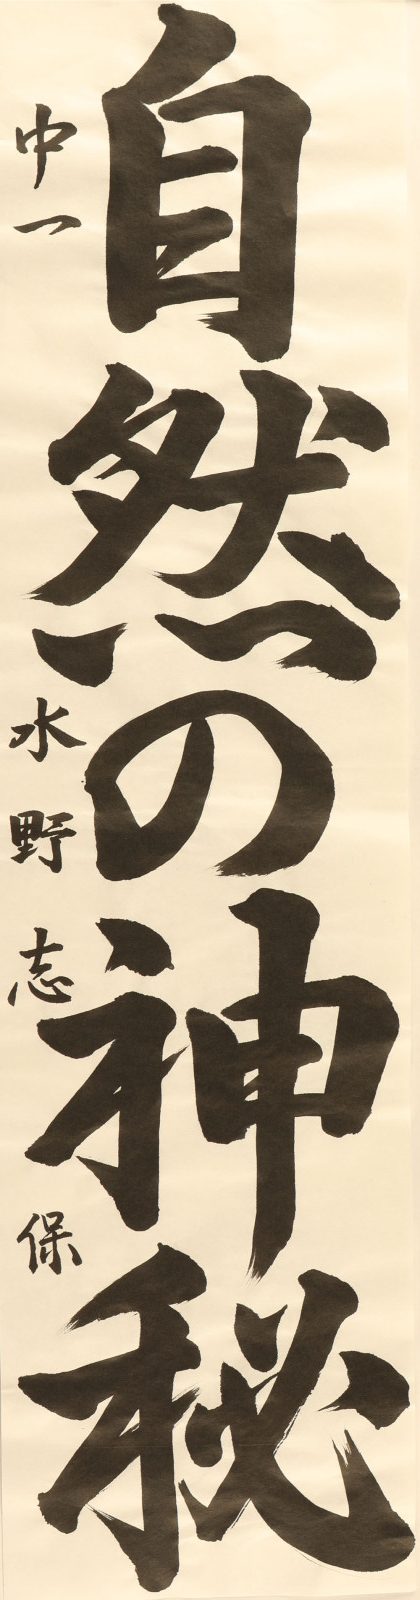 自然の神秘
中一 水野志保